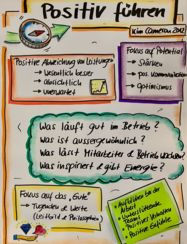 Positiv führen
Kim Cameron 2012
Positive Abweichung von Leistungen
→ Wesentlich besser
→ Absichtlich
→ unerwartet
Fokus auf Potential
→ Stärken
→ pos. Kommunikation
→ Optimismus
Was läuft gut im Betrieb?
Was ist aussergewöhnlich?
Was lässt Mitarbeiter & Betrieb wachsen?
Was inspiriert & gibt Energie?
Fokus auf das „Gute"
→ Tugenden & Werte
(Leitbild & Philosophie)
Aufblühen bei der
Arbeit
Unterstützende
Teams
Positives Verhalten
Positive Gefühle